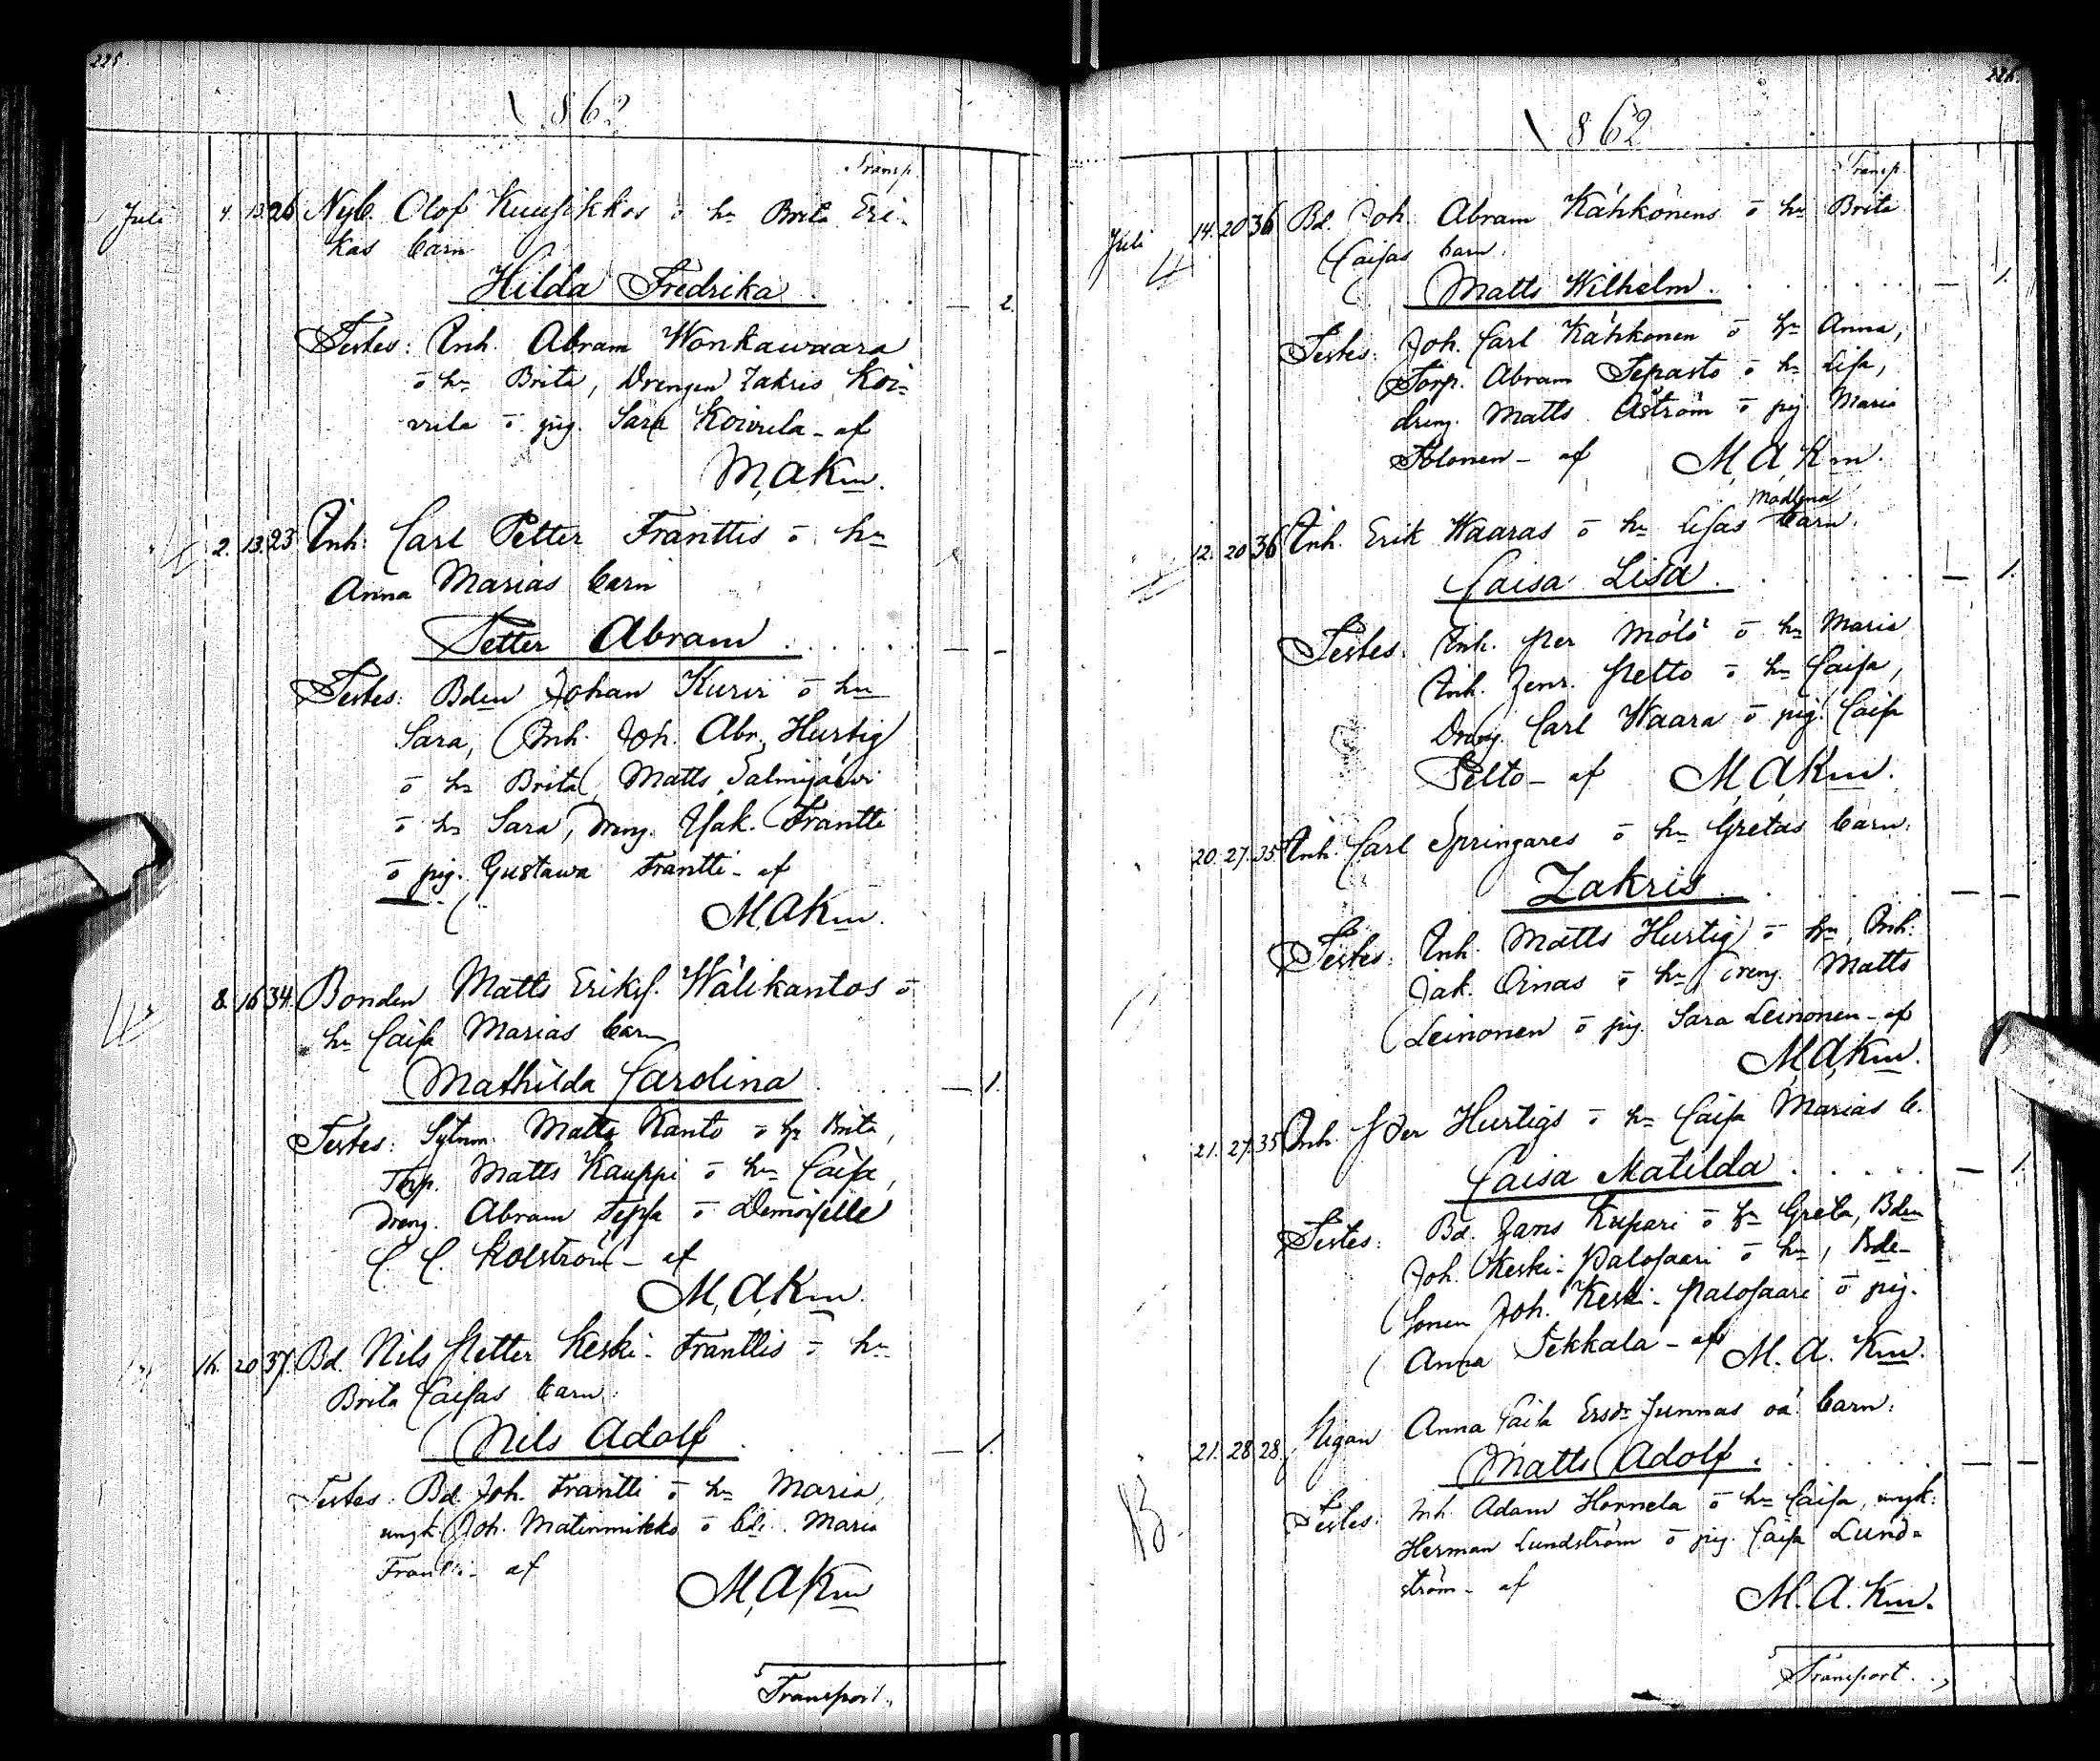 225.
1862
Transp.
Juli 4. 13. 26 Nyb. Olof Kuusikkos o hu Brita Eri-
kas barn
Hilda Fredrika . . . . — 2.
Testes: Inh. Abram Wonkawaara
o hu Brita, Drengen Zakris Koi-
vula o pig. Sara Koivula - af
M. A. Km.
2. 13. 23 Inh. Carl Petter Franttis o hu
Anna Marias barn
Petter Abram . . . . — -
Testes: Bden Johan Kurvi o hu
Sara, Inh. Joh. Abr. Hurtig
o hu Brita, Matts Salmijärvi
o hu Sara, dreng. Isak. Frantti
o pig. Gustawa Frantti - af
M. A. Km.
8. 16 34. Bonden Matts Eriks. Wälikantos o
hu Caisa Marias barn
Mathilda Carolina . . . — 1.
Testes: Sytnm. Matts Kanto o hu Brita,
Torp. Matts Kauppi o hu Caisa,
dreng. Abram Sepsa o Demoiselle
C. C. Kolström - af
M. A. Km.
16. 20 37. Bd. Nils Petter Keski-Franttis o hu
Brita Caisas barn:
Nils Adolf . . . . — 1.
Testes: Bd. Joh. Frantti o hu Maria,
ungk. Joh. Matinmikko o bdr. Maria
Frantti - af
M. A. Km
Transport.
226.
1862
Transp.
Juli 14. 20 36 Bd. Joh. Abram Kähkönens o hu Brita
Caisas barn.
Matts Wilhelm . . . . — 1.
Testes: Joh. Carl Kähkönen o hu Anna,
Torp. Abram Sepasto o hu Lisa,
dreng. Matts Åström o pig. Maria
Tolonen - af M. A. Km.
Madlena
12. 20 36 Inh. Erik Waaras o hu Lisas barn.
Caisa Lisa . . . . — 1.
Testes: Inh. Per Mölö o hu Maria
Inh. Henr. Pelto o hu Caisa,
Dreng. Carl Waara o pig. Caisa
Pelto - af M. A. Km.
20. 27. 35 Inh. Carl Springares o hu Gretas barn.
Zakris . . . . — -
Testes: Inh. Matts Hurtig o hu, Inh.
Jak. Oinas o hu, dreng. Matts
Leinonen o pig. Sara Leinonen - af
M. A. Km.
21. 27. 35 Inh. Per Hurtigs o hu Caisa Marias b.
Caisa Matilda . . . . — 1.
Testes: Bd. Hans Kupari o hu Greta, Bden
Joh. Keski-Palosaari o hu, Bde-
sonen Joh. Keski-Palosaari o pig.
Anna Pekkala - af M. A. Km.
21. 28 28. Pigan Anna Caisa Ersdr Junnas oä. barn:
Matts Adolf . . . . — —
Testes: Inh. Adam Hornela o hu Caisa, ungk.
Herman Lundström o pig. Caisa Lund-
ström - af
M. A. Km.
Transport.